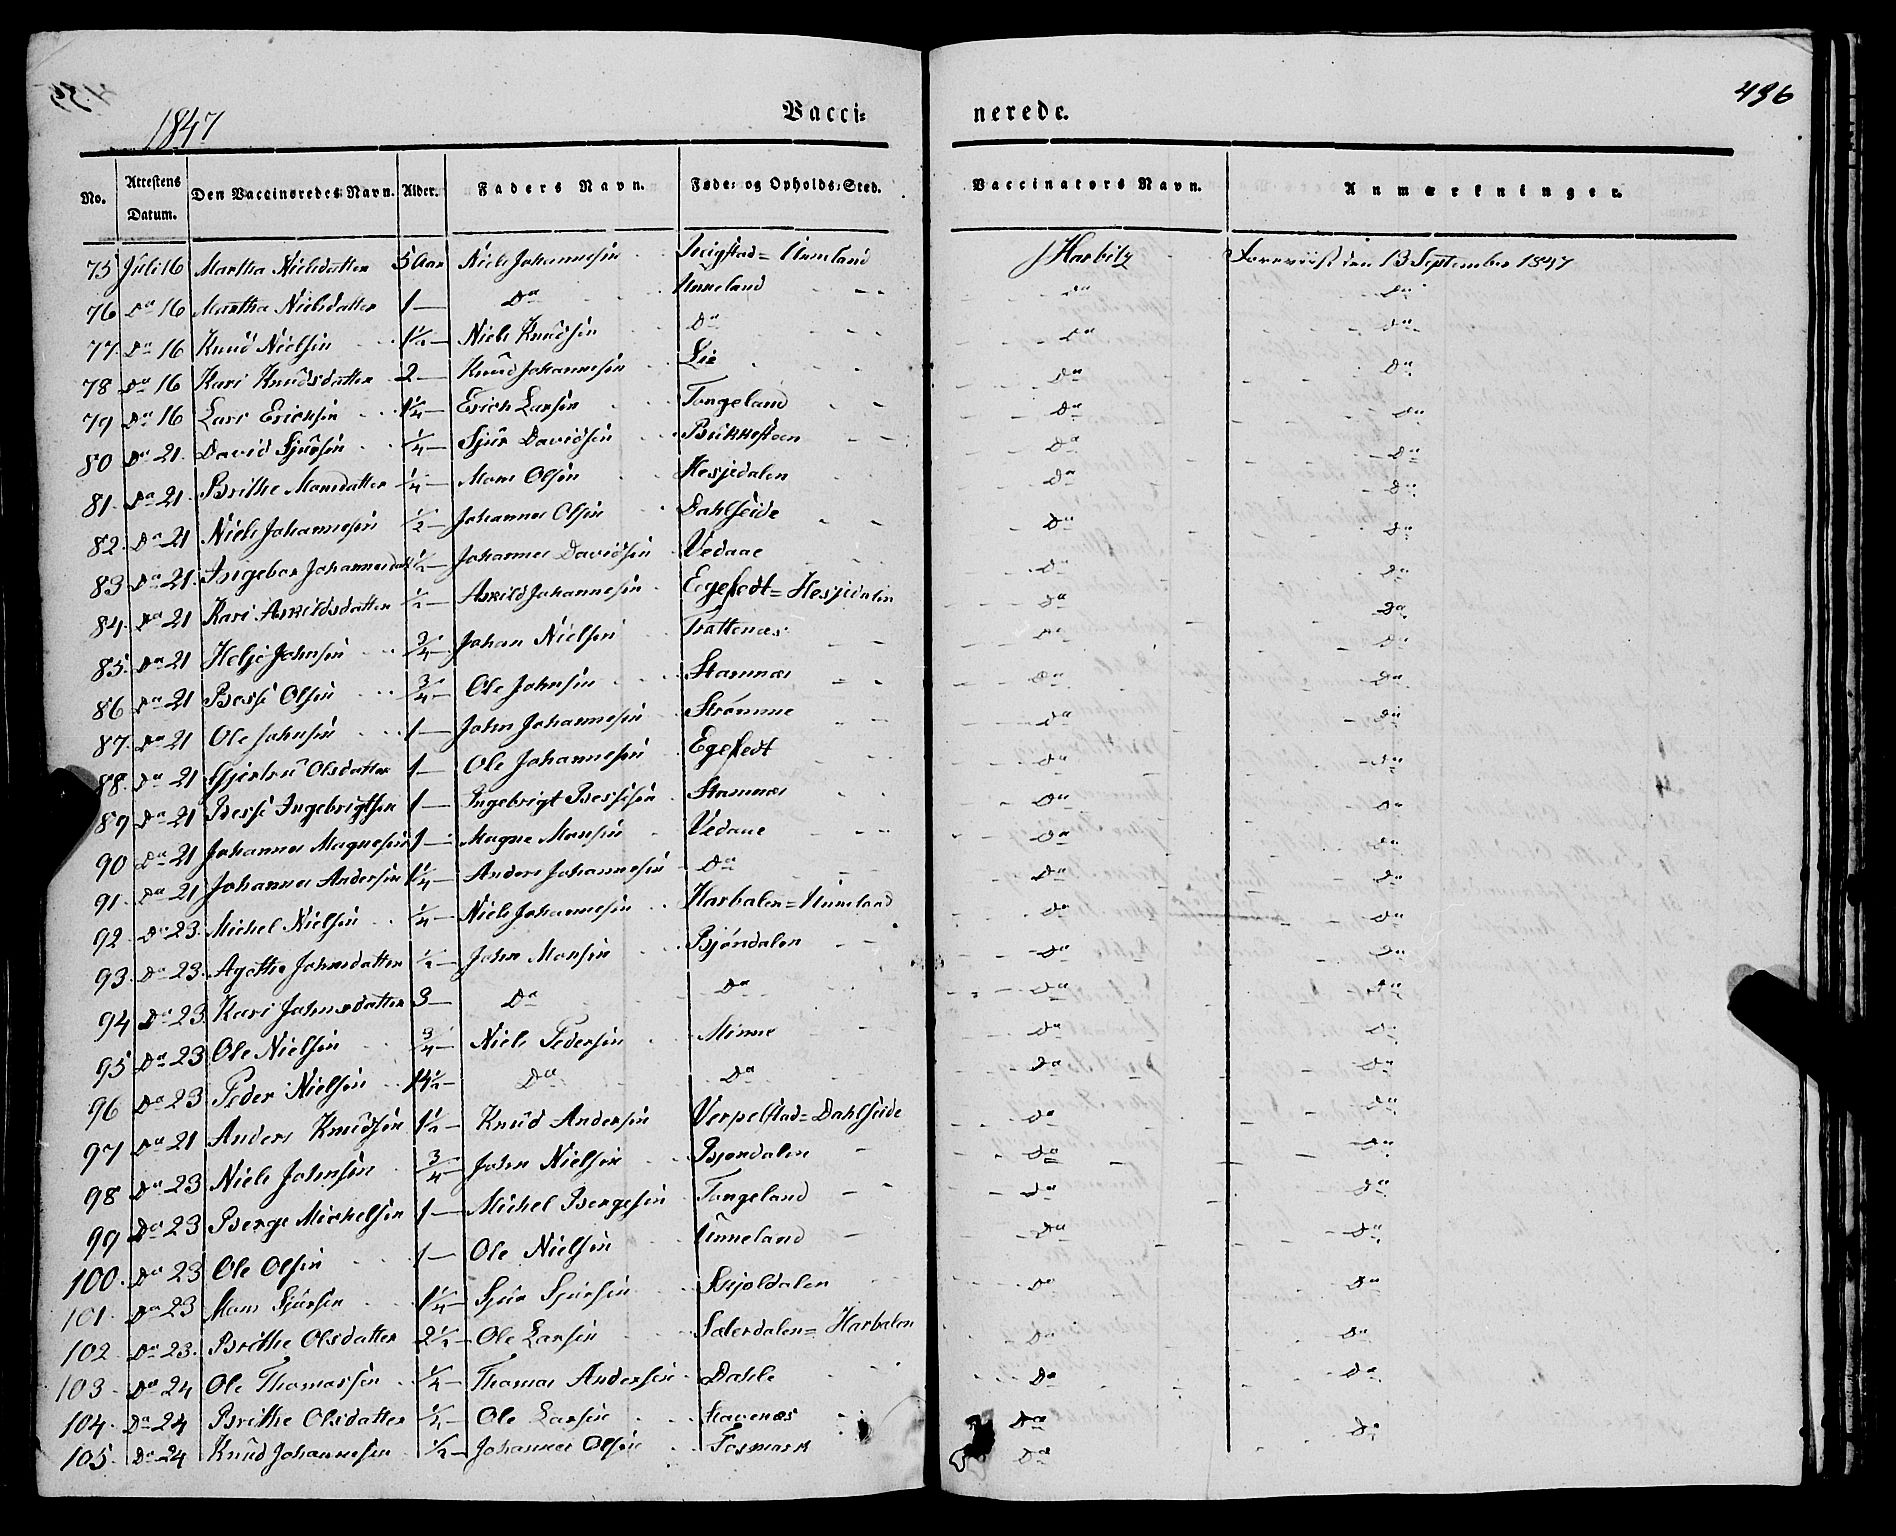 436
1847
Vacci= nerede.
No. Attestens Datum. Den Vaccineredes Navn. Alder. Faders Navn. Føde- og Opholds-Sted. Vaccinators Navn. Anmærkninger.
75 Juli 16 Martha Nielsdatter 5 Aar Niels Johannesen = Unneland J Harbitz Foreviist den 13 September 1847
76 Do 16 Martha Nielsdatter 1 — Do Unneland Do Do
77 Do 16 Knud Nielsen 1½ — Niels Knudsen Do Do Do
78 Do 16 Kari Knudsdatter 2 — Knud Johannesen Lie Do Do
79 Do 16 Lars Erichsen 1¼ — Erich Larsen Tangeland Do Do
80 Do 21 David Sjursen ¼ — Sjur Davidsen Do Do
81 Do 21 Brithe Monsdatter ¼ — Mons Olsen Hesjedalen Do Do
82 Do 21 Niels Johannesen ½ — Johannes Olsen Dahlseide Do Do
83 Do 21 Ingebor Johannesdat ½ — Johannes Davidsen Vedaae Do Do
84 Do 21 Kari Askildsdatter ½ — Askild Johannesen = Hesjedalen Do Do
85 Do 21 Helje Johnsen ¾ — Johan Nielsen Trættenæs Do Do
86 Do 21 Besse Olsen ¾ — Ole Johnsen Stamnæs Do Do
87 Do 21 Ole Johnsen 1 — John Johannesen Strømme Do Do
88 Do 21 Gjertru Olsdatter 1 — Ole Johannesen Do Do
89 Do 21 Besse Ingebrigtsen 1 — Ingebrigt Bessesen Stamnæs Do Do
90 Do 21 Johannes Magnesen 1 — Magne Monsen Vedaae Do Do
91 Do 21 Johannes Andersen 1¼ — Anders Johannesen Do Do Do
92 Do 23 Michel Nielsen ¼ — Niels Johannesen Harbalen = Unneland Do Do
93 Do 23 Agathe Johnsdatter ½ — John Monsen Bjørndalen Do Do
94 Do 23 Kari Johnsdatter 3 — Do Do Do Do
95 Do 23 Ole Nielsen ¾ — Niels Pedersen Minne Do Do
96 Do 23 Peder Nielsen 14½ — Do Do Do Do
97 Do 21 Anders Knudsen 1½ — Knud Andersen = Dahlseide Do Do
98 Do 23 Niels Johnsen ¾ — John Nielsen Bjørndalen Do Do
99 Do 23 Berge Michelsen 1 — Michel Bergesen Tangeland Do Do
100 Do 23 Ole Olsen 1 — Ole Nielsen Unneland Do Do
101 Do 23 Mons Sjursen 1¼ — Sjur Sjursen Skjoldalen Do Do
102 Do 23 Brithe Olsdatter 2½ — Ole Larsen = Harbalen Do Do
103 Do 24 Ole Thomassen ¼ — Thomas Andersen Dahle Do Do
104 Do 24 Brithe Olsdatter ½ — Ole Larsen Stavenæs Do Do
105 Do 24 Knud Johannesen ½ — Johannes Olsen Fosmark Do